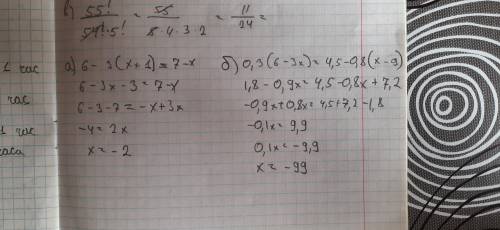 1 час
час
1 час
часа
в) 55!/(54!·5!) = 55/(5·4·3·2) = 11/24 =
а) 6-3(x+1)=7-x
6-3x-3=7-x
6-3-7=-x+3x
-4=2x
x=-2
б) 0,3(6-3x)=4,5-0,8(x-9)
1,8-0,9x=4,5-0,8x+7,2
-0,9x+0,8x=4,5+7,2-1,8
-0,1x=9,9
0,1x=-9,9
x=-99